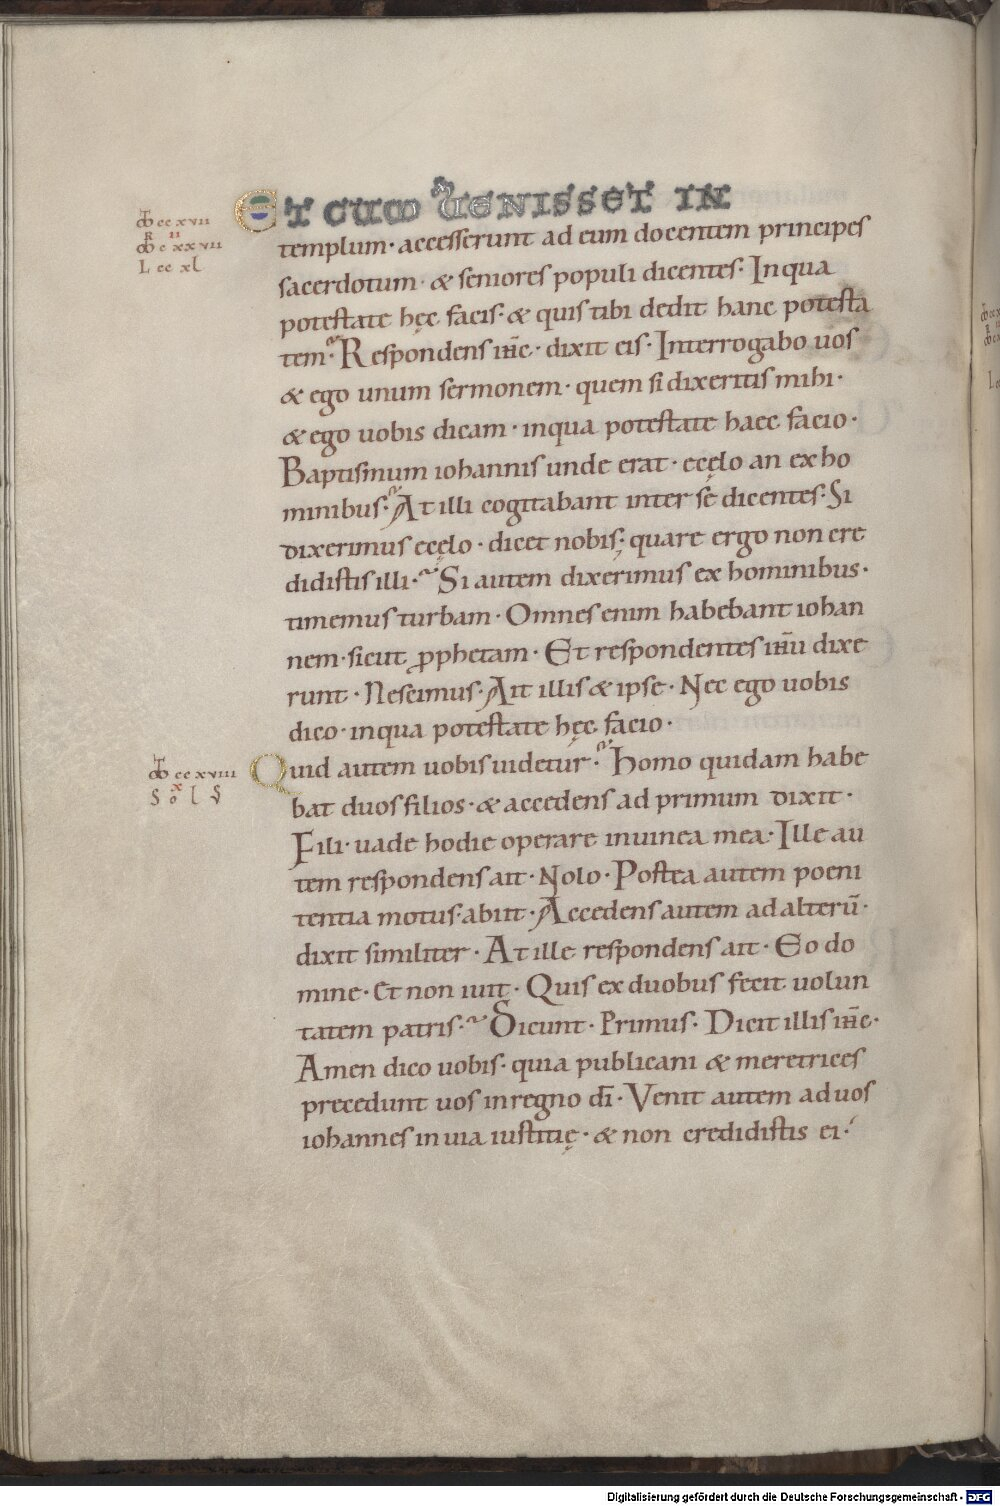 ET CUM UENISSET IN
templum · accesserunt ad eum docentem principes
sacerdotum · & seniores populi dicentes · In qua
potestate hęc facis · & quis tibi dedit hanc potesta
tem · Respondens ih̅c · dixit eis · Interrogabo uos
& ego unum sermonem · quem si dixeritis mihi ·
& ego uobis dicam · in qua potestate haec facio ·
Baptismum iohannis unde erat · e cęlo an ex ho
minibus · At illi cogitabant inter se dicentes · Si
dixerimus e cęlo · dicet nobis · quare ergo non cre
didistis illi · Si autem dixerimus ex hominibus ·
timemus turbam · Omnes enim habebant iohan
nem · sicut ꝓphetam · Et respondentes ih̅u dixe
runt · Nescimus · Ait illis & ipse · Nec ego uobis
dico · in qua potestate hęc facio ·
Quid autem uobis uidetur · Homo quidam habe
bat duos filios · & accedens ad primum dixit ·
Fili · uade hodie operare in uinea mea · Ille au
tem respondens ait · Nolo · Postea autem poeni
tentia motus · abiit · Accedens autem ad alterū ·
dixit similiter · At ille respondens ait · Eo do
mine · Et non iuit · Quis ex duobus fecit uolun
tatem patris · Dicunt · Primus · Dicit illis ih̅c ·
Amen dico uobis · quia publicani & meretrices
precedunt uos in regno dī · Venit autem ad uos
iohannes in uia iustitię · & non credidistis ei ·
cc xvii
R II
c xxvii
L cc xl
cc xviii
x
S o l S
Digitalisierung gefördert durch die Deutsche Forschungsgemeinschaft - DFG